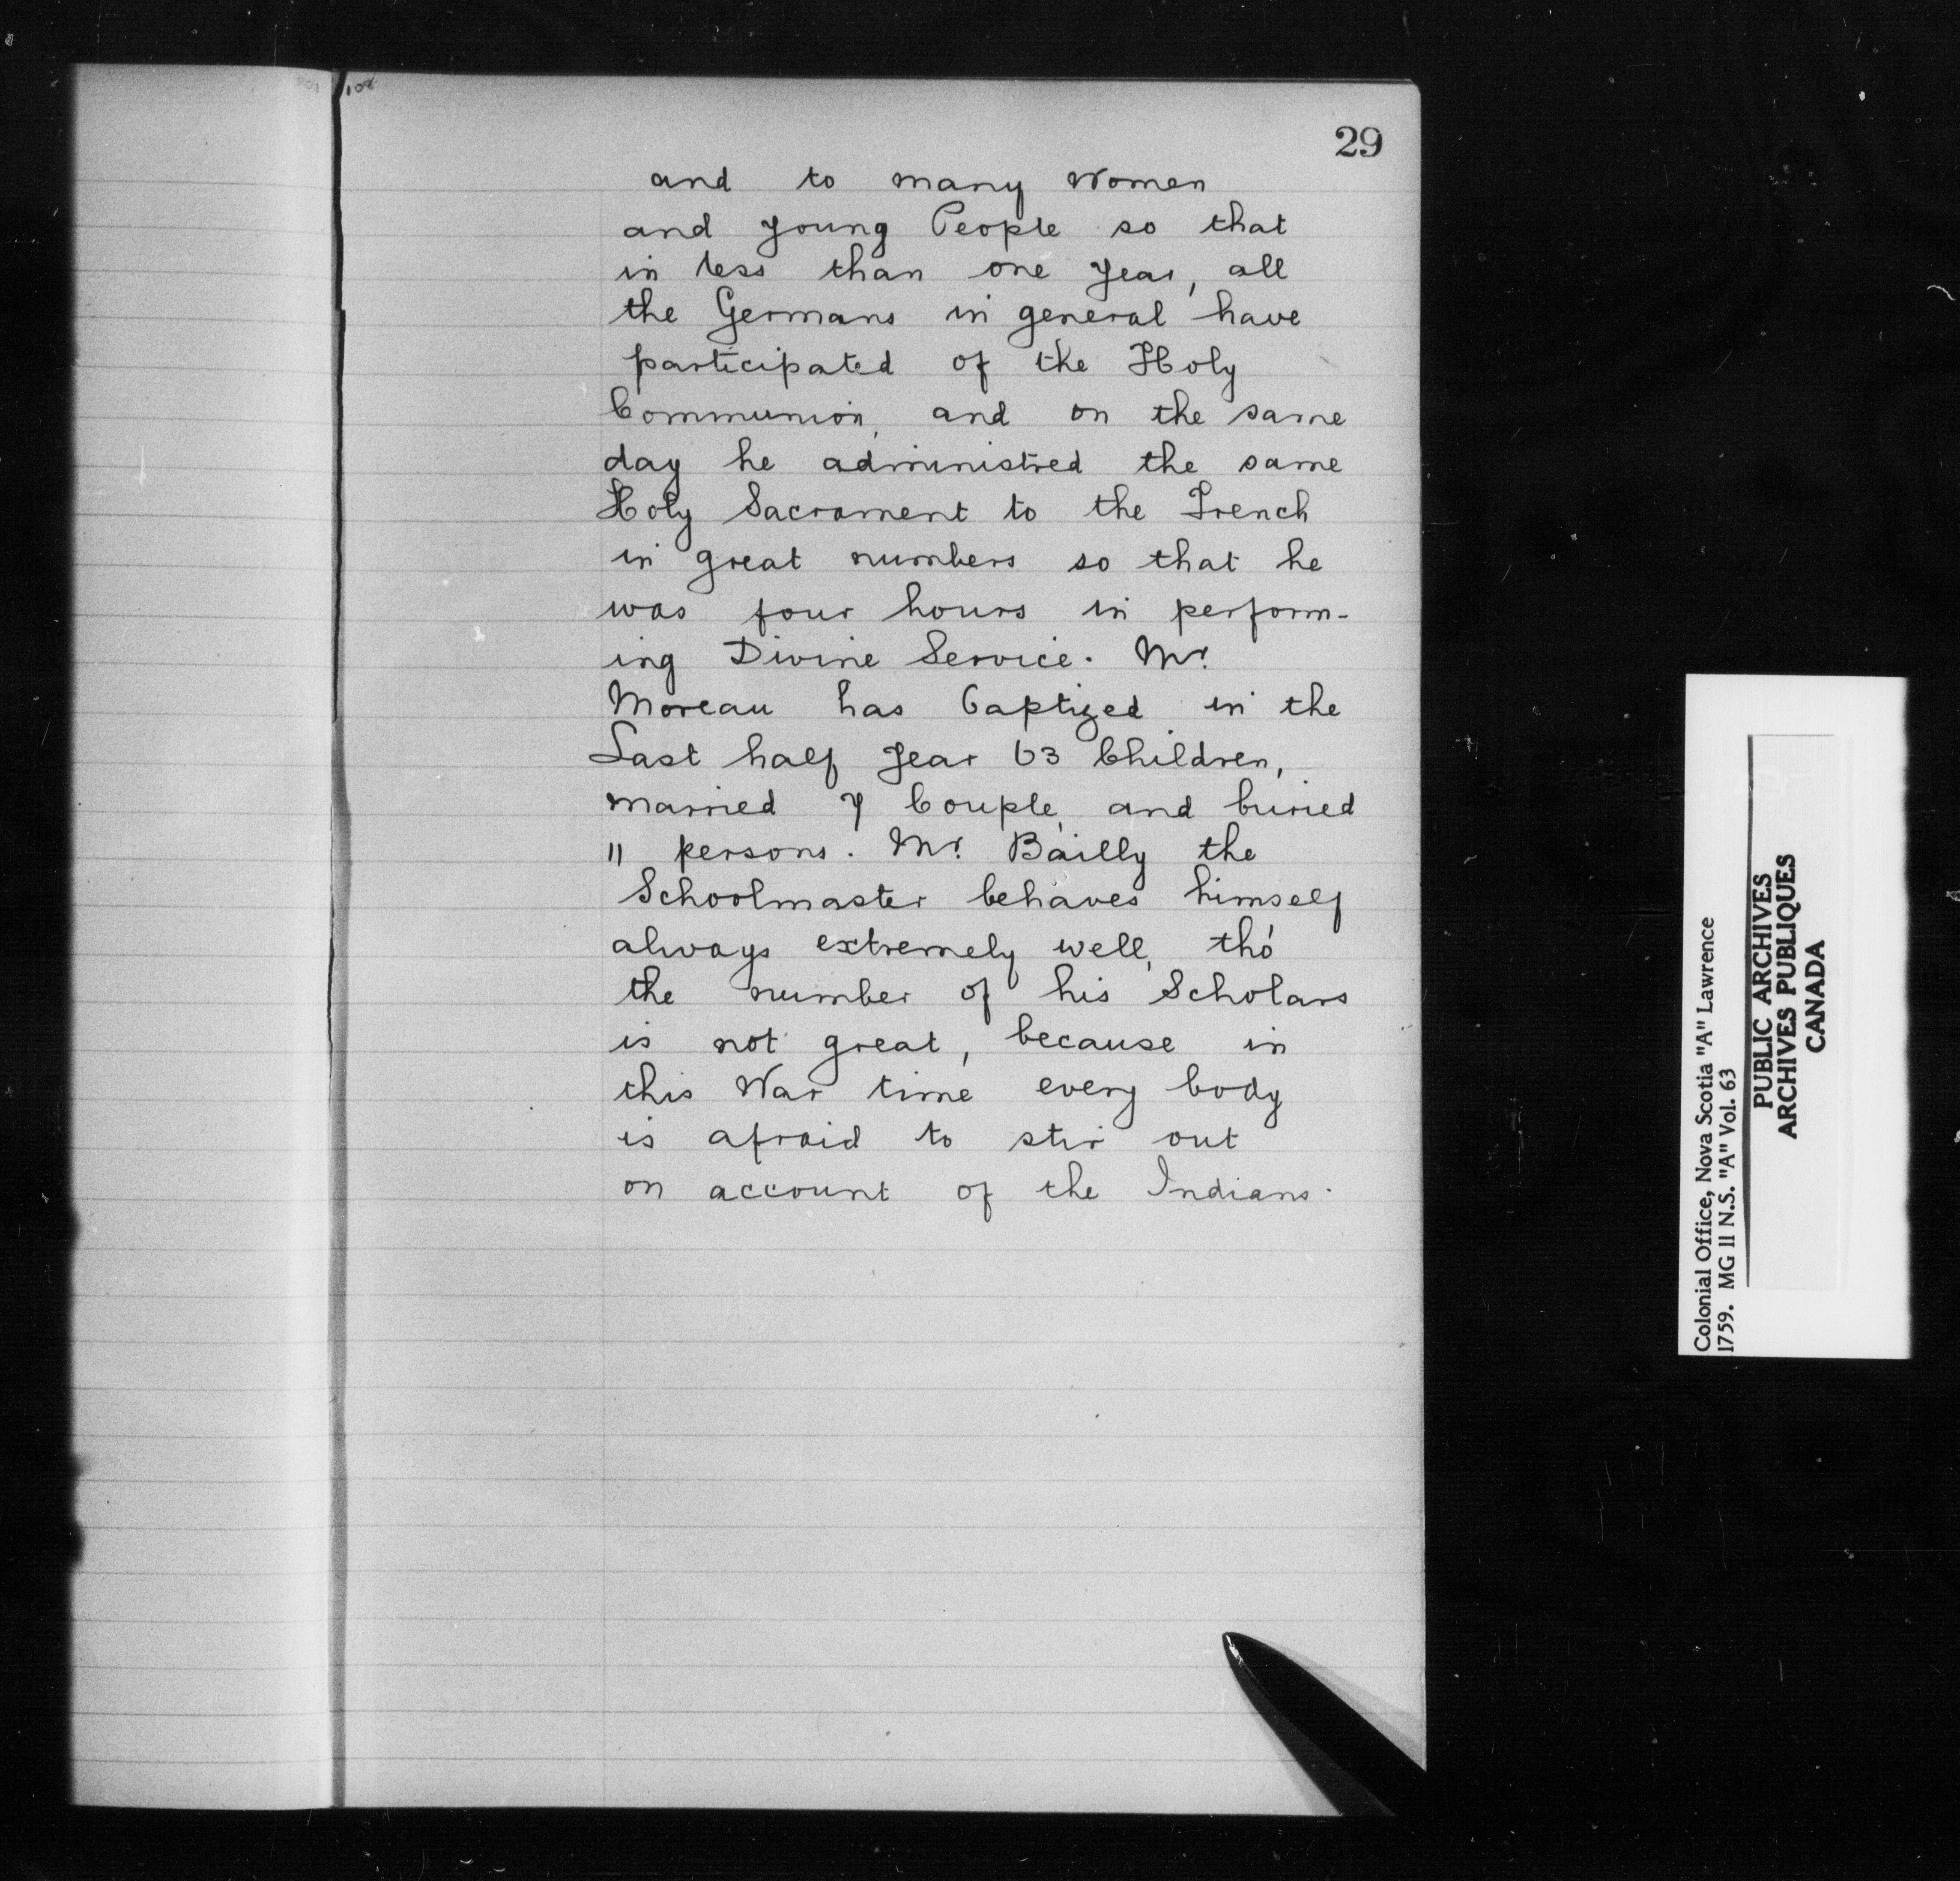 29
and to many Women
and young People so that
in less than one year, all
the Germans in general have
participated of the Holy
Communion, and on the same
day he administred the same
Holy Sacrament to the French
in great numbers so that he
was four hours in perform-
ing Divine Service. Mr.
Moreau has baptized in the
Last half year 63 Children,
married 7 Couple, and buried
11 persons. Mr. Bailly the
Schoolmaster behaves himself
always extremely well, tho'
the number of his Scholars
is not great, because in
this War time every body
is afraid to stir out
on account of the Indians.
Colonial Office, Nova Scotia "A" Lawrence
1759. MG 11 N.S. "A" Vol. 63
PUBLIC ARCHIVES
ARCHIVES PUBLIQUES
CANADA